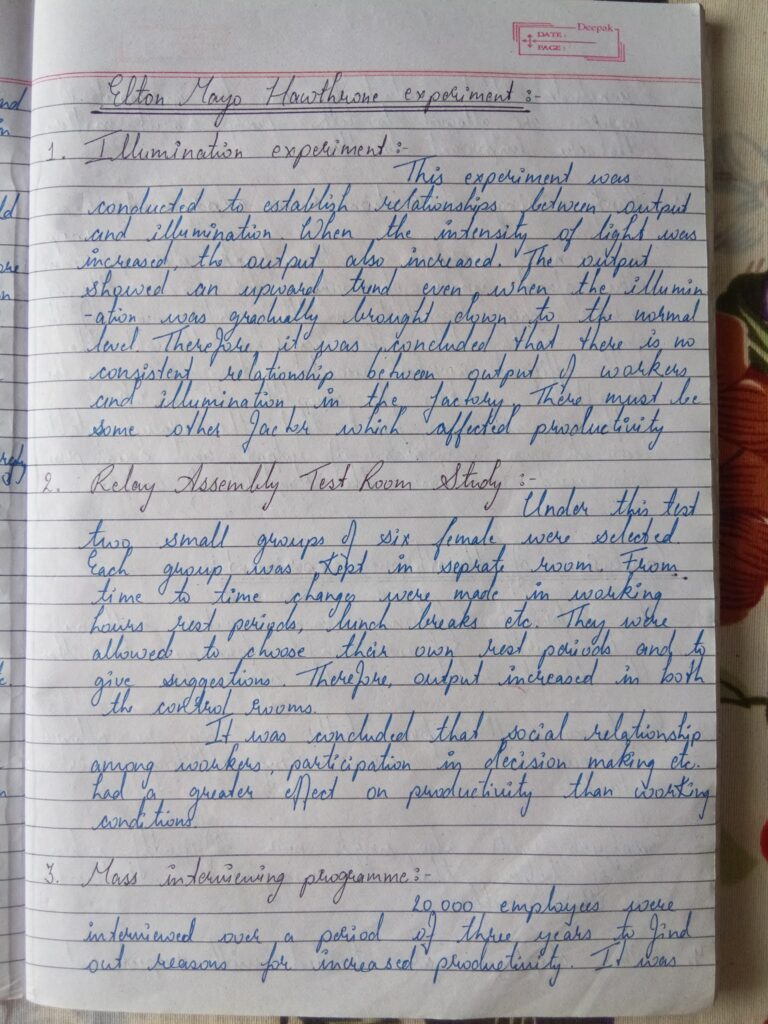 Deepak
DATE:
PAGE:
Elton Mayo Hawthrone experiment :-
1. Illumination experiment :-
This experiment was
conducted to establish relationships between output
and illumination When the intensity of light was
increased, the output also increased. The output
showed an upward trend even when the illumin
-ation was gradually brought down to the normal
level. Therefore, it was concluded that there is no
consistent relationship between output of workers
and illumination in the factory. There must be
some other factor which affected productivity
2. Relay Assembly Test Room Study :-
Under this test
two small groups of six female were selected.
Each group was kept in seprate room. From
time to time changes were made in working
hours rest periods, lunch breaks etc. They were
allowed to choose their own rest periods and to
give suggestions. Therefore, output increased in both
the control rooms.
It was concluded that social relationship
among workers, participation in decision making etc.
had a greater effect on productivity than working
conditions.
3. Mass interviening programme :-
20,000 employees were
interviewed over a period of three years to find
out reasons for increased productivity. It was